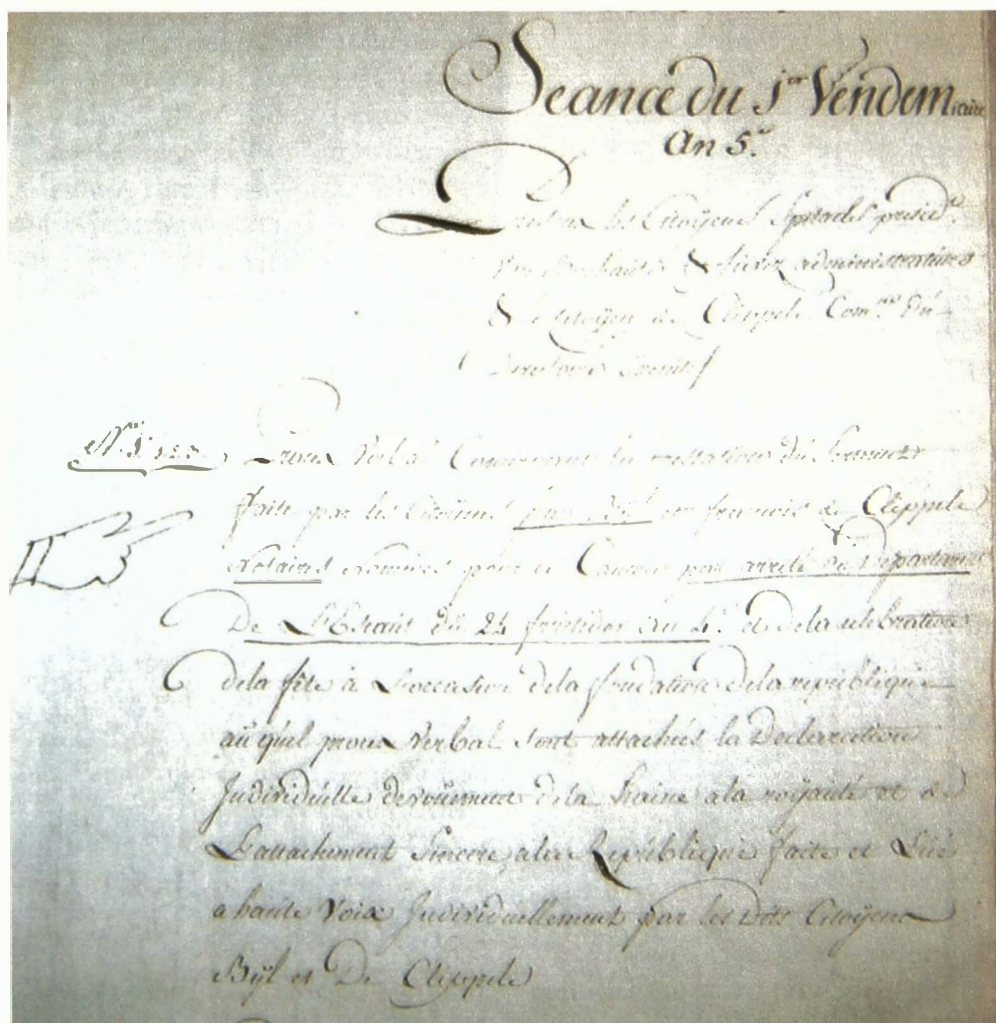 Seance du 1er Vendemiaire
An 5e
les Citoÿens president
& administrateurs
& le Citoÿen de Clippele Comre du
Directoire Executif
Proces Verbal Concernant la prestation du Serment
faite par les Citoÿens Bÿl et francois de Clippele
Notaires nommés pour ce Canton par arreté du Departemt
De L'Escaut du 24 fructidor an 4e et de la celebration
dela fête à L'occasion dela fondation dela republique
auquel proces Verbal sont attachés la Declaration
Individuelle dela haine ala roÿauté et de
L'attachement Sincere ala Republique faite et
a haute Voix Individuellement par les dits Citoÿens
Bÿl et De Clippele